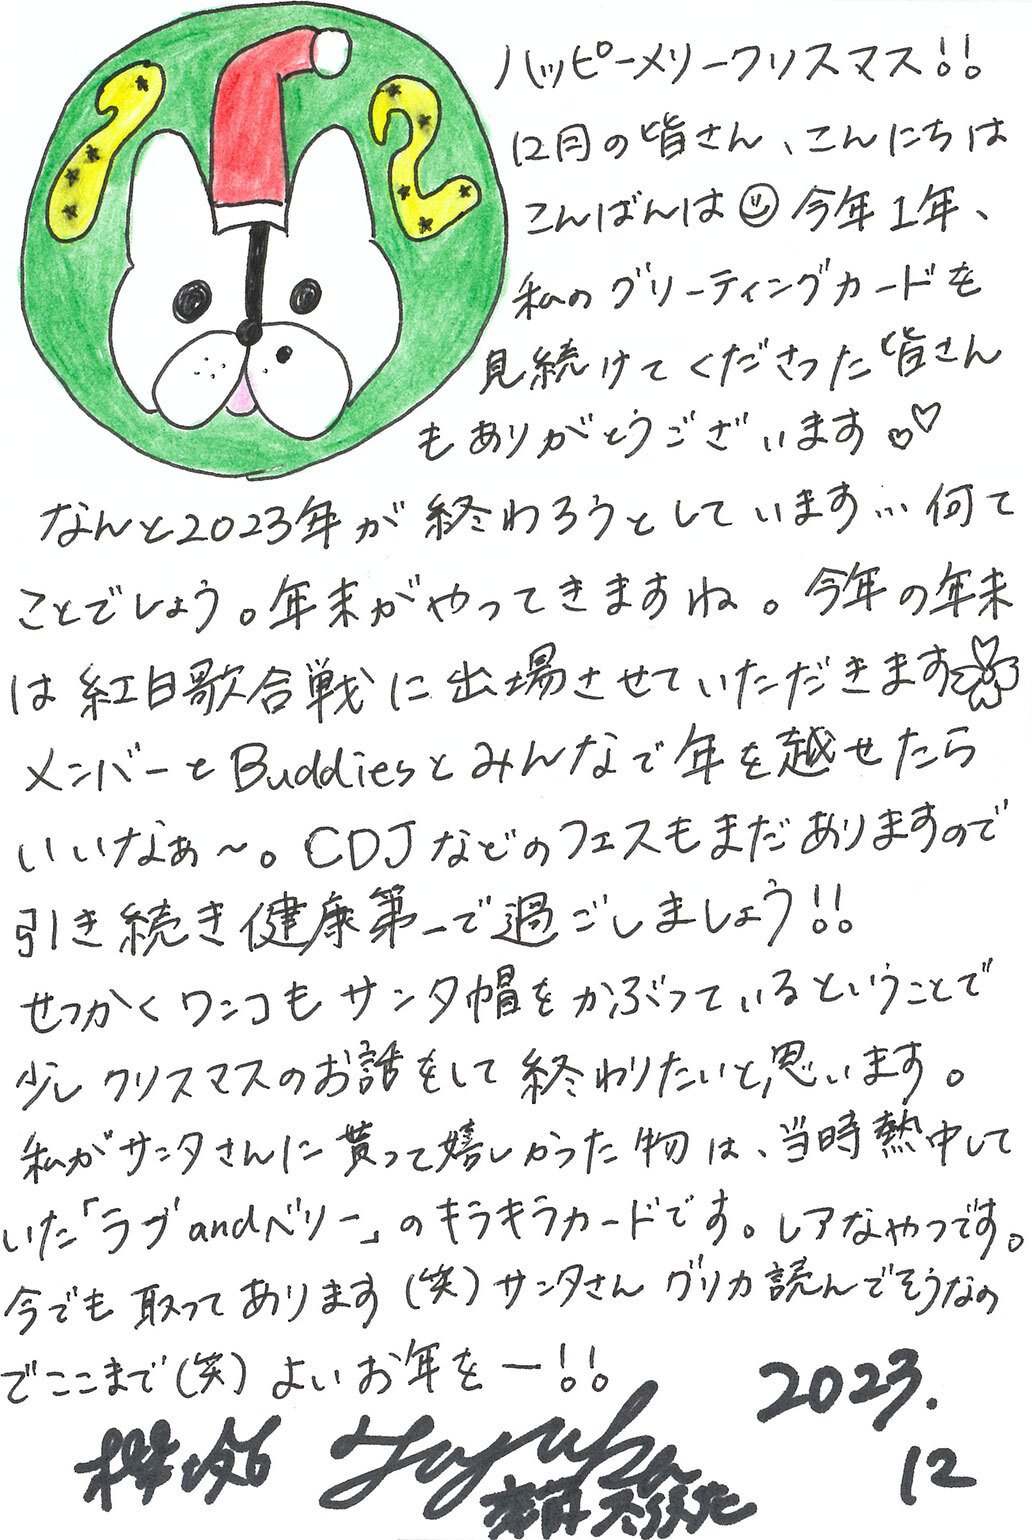 12
ハッピーメリークリスマス!!
12月の皆さん、こんにちは
こんばんは 今年1年、
私のグリーティングカードを
見続けてくださった皆さん
もありがとうございます。♡
なんと2023年が終わろうとしています…何て
ことでしょう。年末がやってきますね。今年の年末
は紅白歌合戦に出場させていただきます
メンバーとBuddiesとみんなで年を越せたら
いいなぁ〜。CDJなどのフェスもまだありますので
引き続き健康第一で過ごしましょう!!
せっかくワンコもサンタ帽をかぶっているということで
少しクリスマスのお話をして終わりたいと思います。
私がサンタさんに貰って嬉しかった物は、当時熱中して
いた「ラブandベリー」のキラキラカードです。レアなやつです。
今でも取ってあります(笑)サンタさんグリカ読んでそうなの
でここまで(笑)よいお年をー!!
2023.
12
櫻坂46